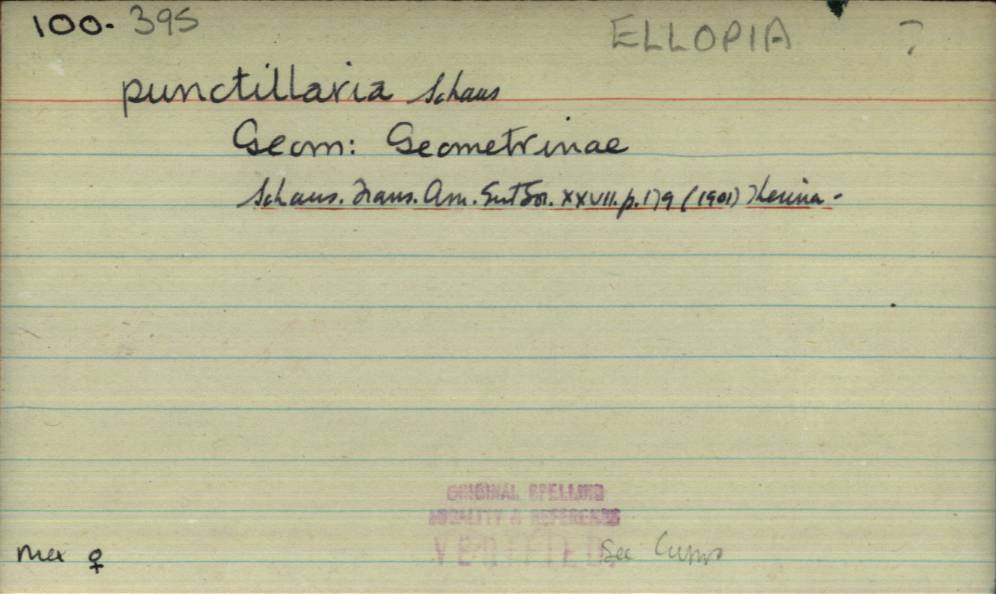 100-395
ELLOPIA ?
punctillaria Schaus
Geom: Geometrinae
Schaus. Trans. Am. Ent Soc. XXVII. p. 179 (1901) Therina -
ORIGINAL SPELLING
LOCALITY & REFERENCE
VERIFIED
See
Mex ♀